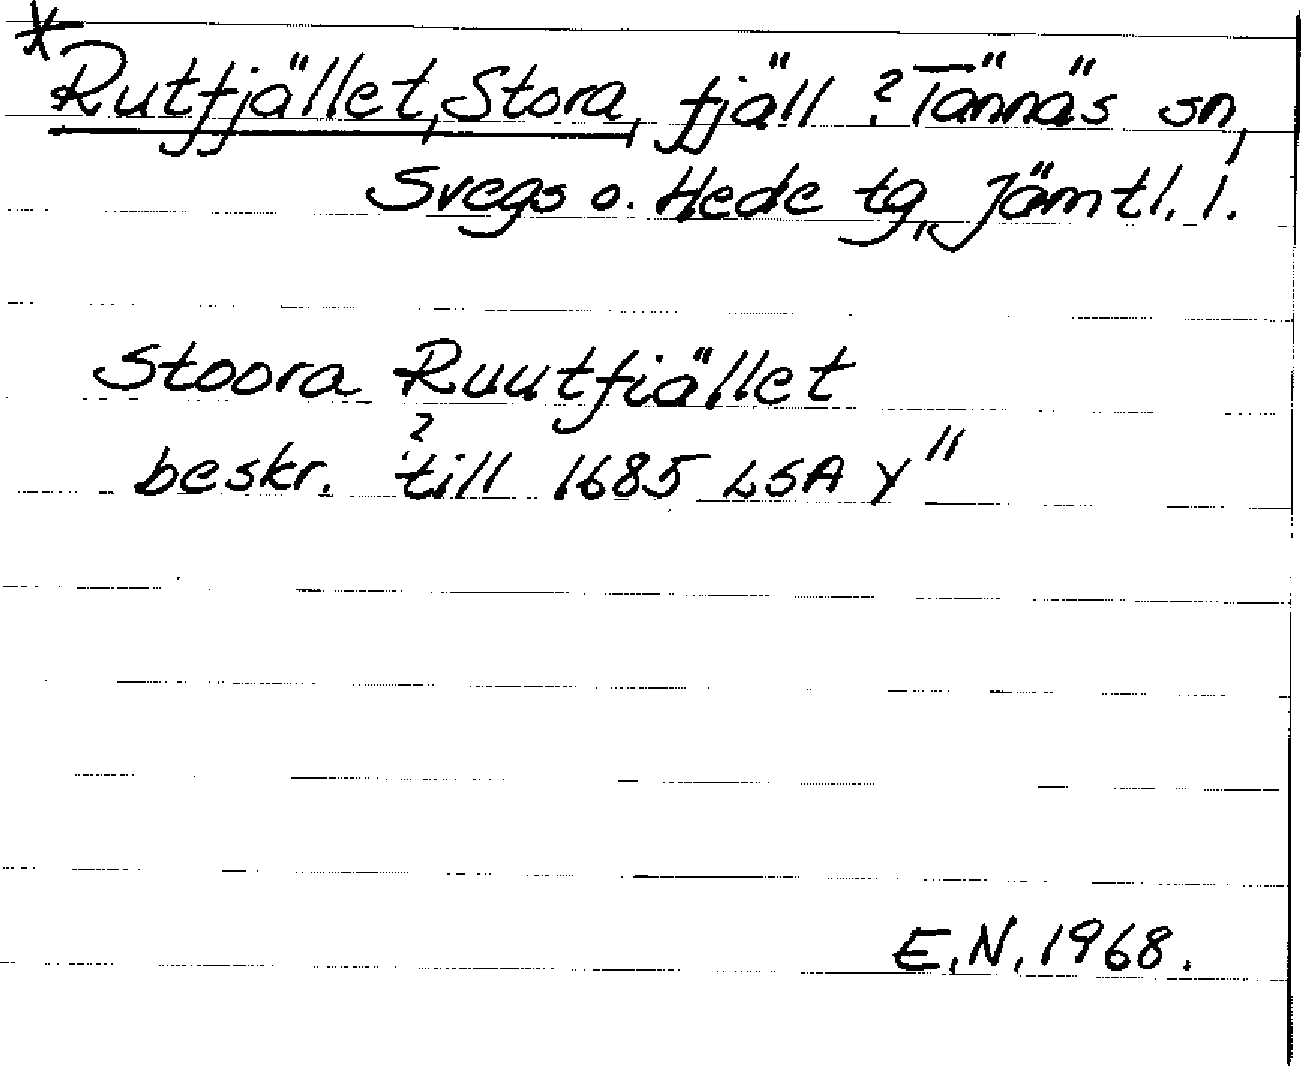 * Rutfjället, Stora, fjäll ? Tännäs sn,
Svegs o. Hede tg, Jämtl. l.
Stoora Ruutfiället
beskr. ? till 1685 LSA Y"
E.N. 1968.